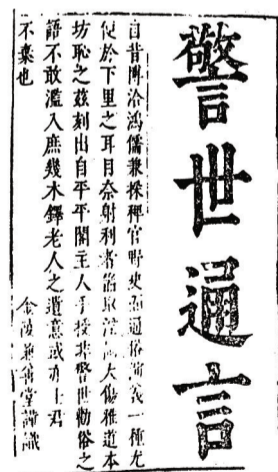 警世通言
自昔博洽鴻儒兼採稗官野史通俗演義一種尤
便於下里之耳目奈射利者取大傷雅道本
坊恥之茲刻出自平平閣主人手授非警世勸俗之
語不敢濫入庶幾木鐸老人之遺意或亦士君
不棄也
金陵兼善堂謹識